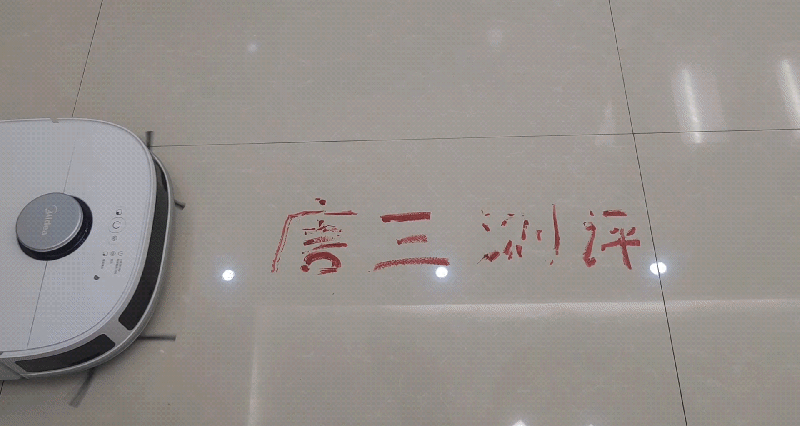 唐三测评
Midea